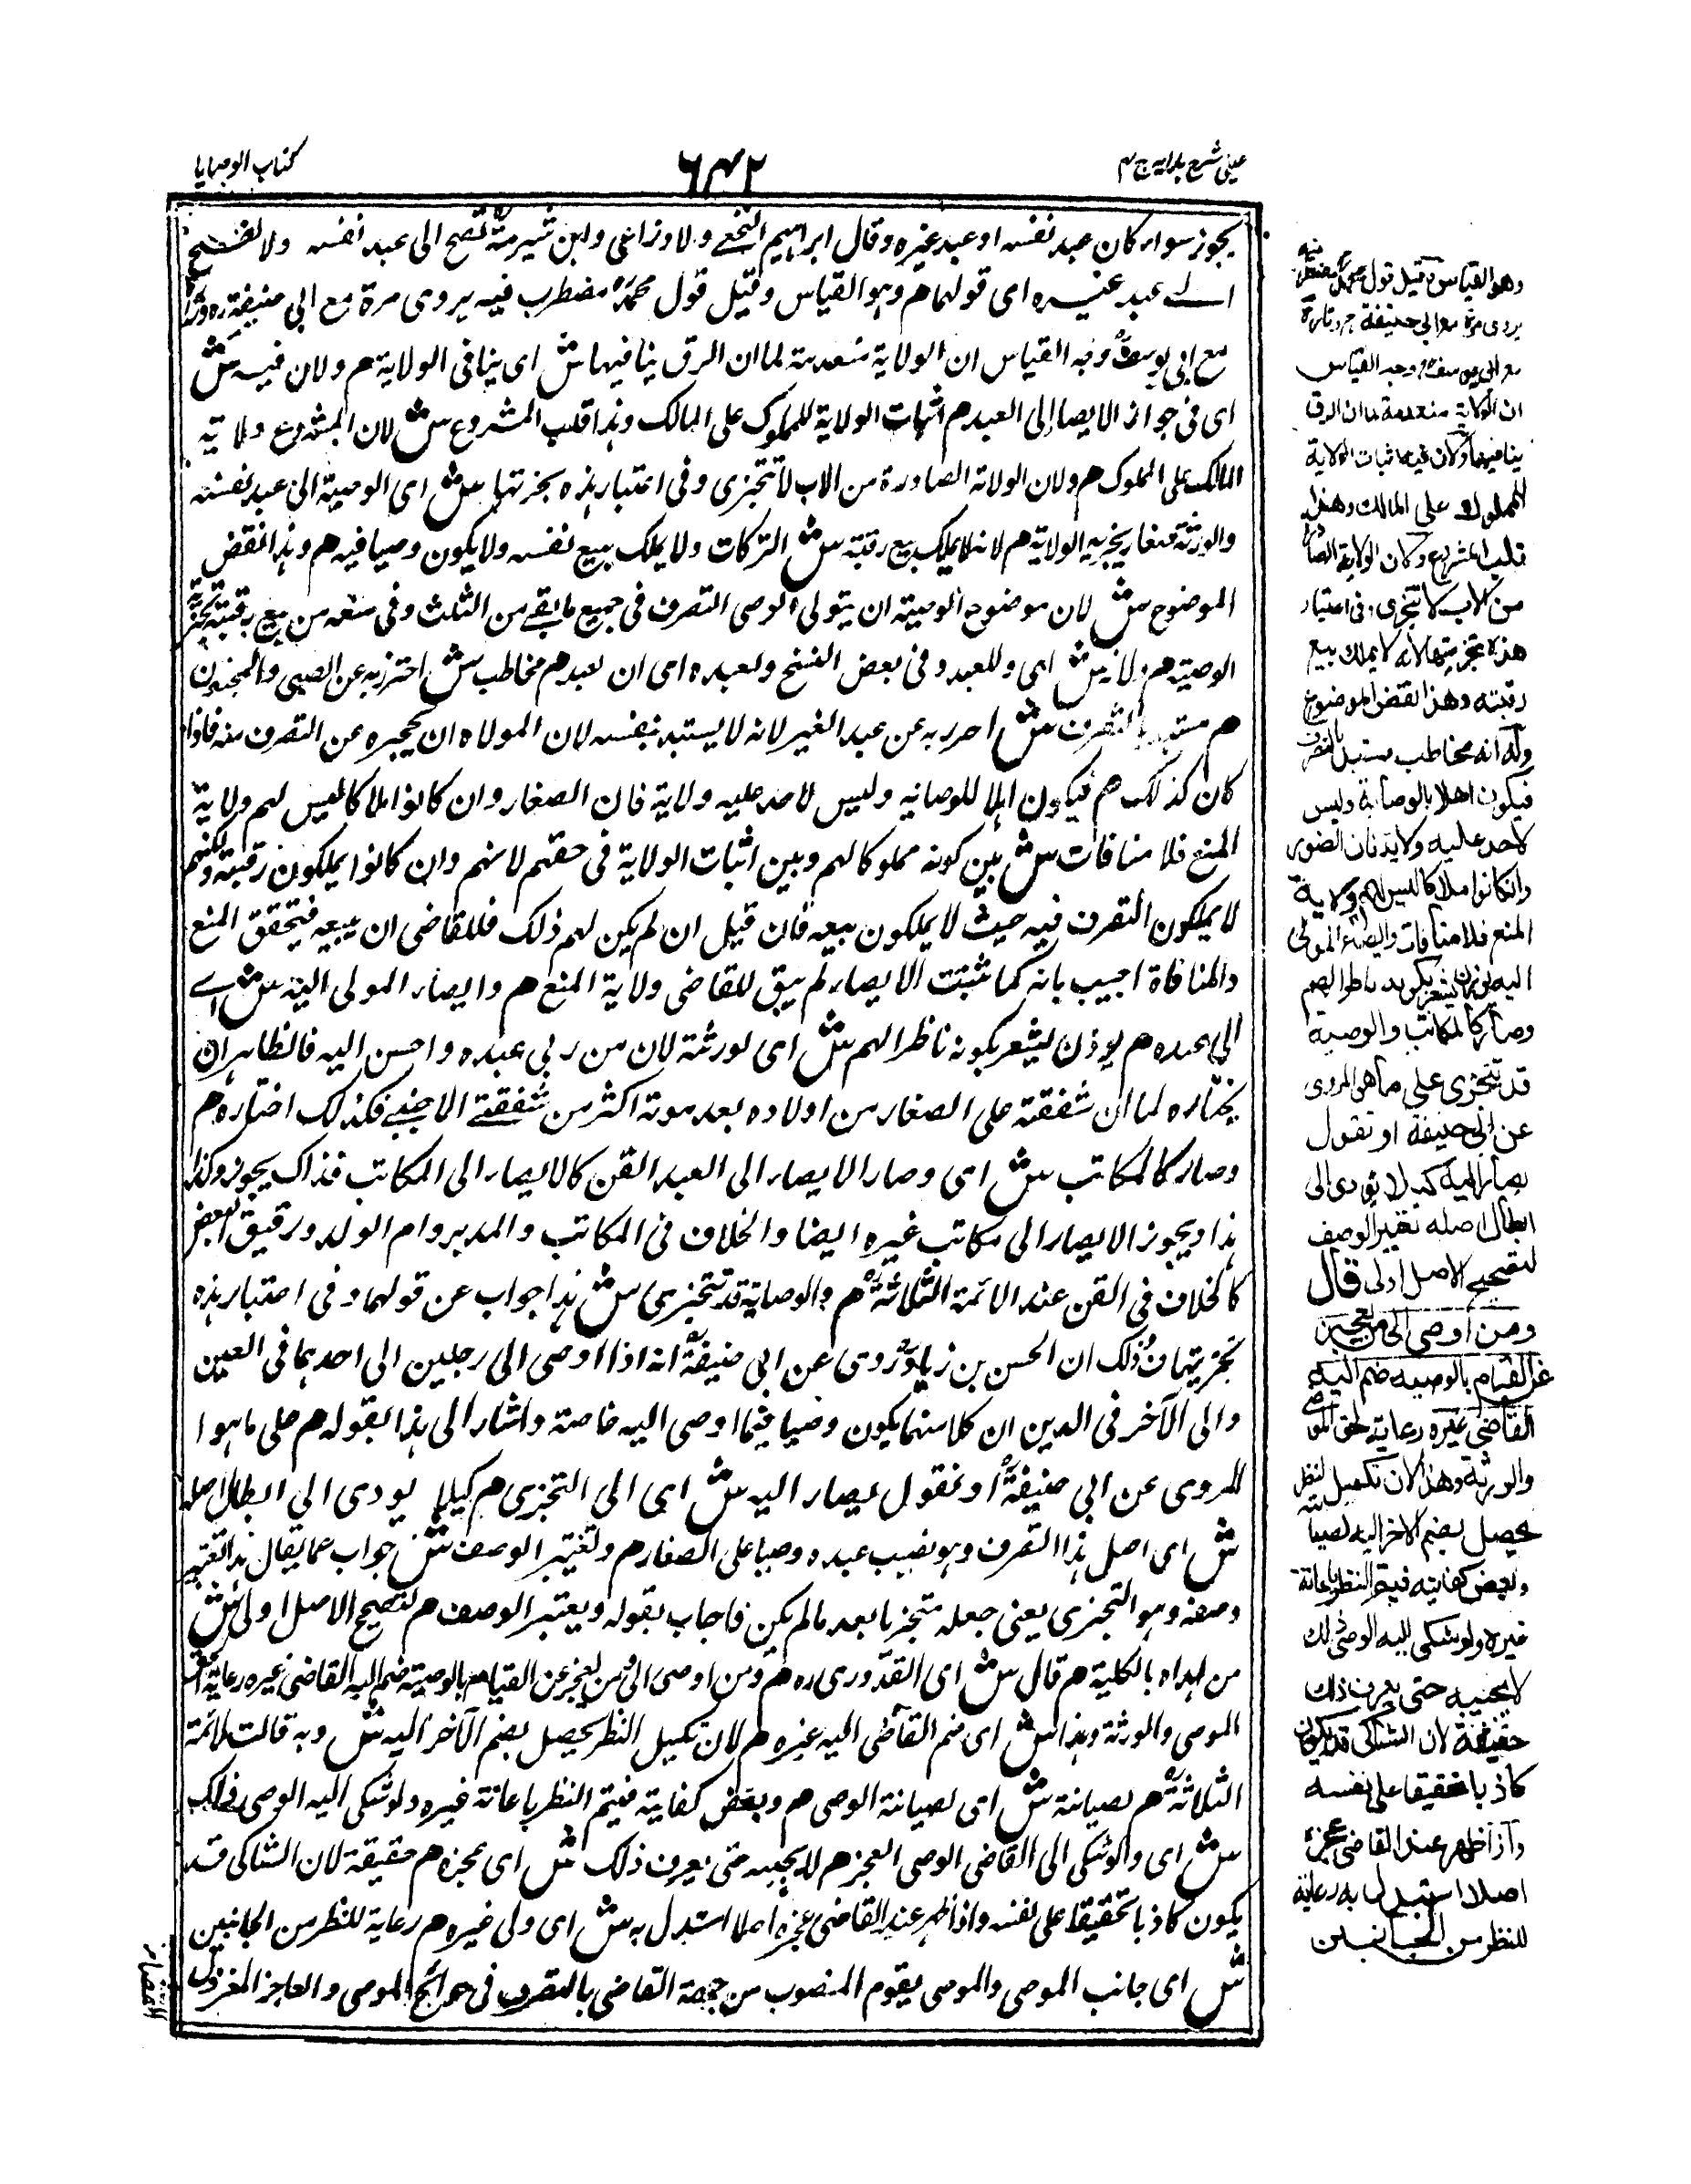 عینی شرح ہدایہ ج ۴
۶۴۲
کتاب الوصایا
یجوز سواء کان عبد نفسه او عبد غیره وقال ابراہیم النخعے والاوزاعی وابن شبرمة تصح الی عبد نفسه ولا تصح
الے عبد غیره ای قولهما هم وہو القیاس وقیل قول محمدؒ مضطرب فیه یروی مرة مع ابی حنیفة رہ وتارة
مع ابی یوسفؒ وجه القیاس ان الولایة منعدمة لما ان الرق ینافیها ش ای ینافی الولایة هم ولان فیه ش
ای فی جواز الایصاء الی العبد هم اثبات الولایة للمملوک علی المالک وہذا قلب المشروع ش لان المشروع ولایة
المالک علی المملوک هم ولان الولایة الصادرة من الاب لا تتجزی وفی اعتبار ہذہ تجزئتها ش ای الوصیة الی عبد نفسه
والورثة صغار تجزیه الولایة هم لانه لا یملک بیع رقبته ش الترکات ولا یملک بیع نفسه ولا یکون وصیا فیه هم وہذا نقض
الموضوع ش لان موضوع الوصیة ان یتولی الوصی التصرف فی جمیع ما بقے من الثلث وفی منعه من بیع رقبته تجزیة
الوصیة هم وله انه ش ای وللعبد وفی بعض النسخ ولعبده ای ان لعبد هم مخاطب ش احترز به عن الصبی والمجنون
هم مستبد بالتصرف ش احترز به عن عبد الغیر لانه لا یستبد بنفسه لان المولاه ان یحجره عن التصرف منه فاذا
کان کذلک هم فیکون اہلا للوصایه ولیس لاحد علیه ولایة فان الصغار وان کانوا ملاکا لیس لهم ولایة
المنع فلا منافات ش بین کونه مملوکا لهم وبین اثبات الولایة فی حقهم لانهم وان کانوا یملکون رقبته ولکنهم
لا یملکون التصرف فیه حیث لا یملکون بیعه فان قیل ان لم یکن لهم ذلک فللقاضی ان یبیعه فیتحقق المنع
والمنافاة اجیب بانه کما ثبتت الایصار لم یبق للقاضی ولایة المنع هم وایصاء المولی الیه ش اے
الی عبده هم یوذن لیشعر بکونه ناظرا لهم ش ای لورثته لان من ربی عبده واحسن الیه فالظاہر ان
یختاره لما ان شفقته علی الصغار من اولاده بعد موته اکثر من شفقة الاجنبے فکذلک اختاره هم
وصار کالمکاتب ش ای وصار الایصاء الی العبد القن کالایصار الی المکاتب فذاک یجوز وکذا
ہذا ویجوز الایصار الی مکاتب غیره ایضا والخلاف فی المکاتب والمدبر وام الولد ورقیق البعض
کالخلاف فی القن عند الائمة الثلاثةؒ هم والوصایة قد تتجزی ش ہذا جواب عن قولهما وفی اعتبار ہذہ
تجزیتها وذلک ان الحسن بن زیادؒ روی عن ابی حنیفةؒ انه اذا اوصی الی رجلین الی احدہما فی العین
والی الآخر فی الدین ان کلا منهما یکون وصیا فیما اوصی الیه خاصة واشار الی ہذا بقوله هم علی ما ہو ا
لمروی عن ابی حنیفةؒ او نقول یصار الیه ش ای الی التجزی هم کیلا یودی الی ابطال اصله
ش ای اصل ہذا التصرف وہو نصیب عبده وصیا علی الصغار هم وتغییر الوصف ش جواب عما یقال ہذا تغییر
وصفه وہو التجزی یعنی جعله متجزیا بعد ما لم یکن فاجاب بقوله ویعتبر الوصف هم لتصحیح الاصل اولی ش
من اہداه بالکلیة هم قال ش ای القدوری رہ هم ومن اوصی الی من یعجز عن القیام بالوصیة ضم الیه القاضی غیره رعایة لحق
الموصی والورثة وہذا ش ای ضم القاضی الیه غیره هم لان تکمیل النظر یحصل بضم الآخر الیه ش وبه قالت الائمة
الثلاثةؒ هم لصیانته ش ای لصیانة الوصی هم وبعض کفایته فیتم النظر باعانة غیره ولو شکی الیه الوصی ذلک
ش ای ولو شکی الی القاضی الوصی العجز هم لا یجیبه حتی یعرف ذلک ش ای عجزه هم حقیقة لان الشاکی قد
یکون کاذبا تخفیفا علی نفسه واذا ظهر عند القاضی عجزه اصلا استبدل به ش ای ولی غیره هم رعایة للنظر من الجانبین
ش ای جانب الموصی والموصی یقوم المنصوب من جهة القاضی بالتصرف فی حوائج الموصی والعاجز المعزول
وهو القیاس وقیل قول محمدؒ مضطرب فیه
یروی مرة مع ابی حنیفة رح وتارة
مع ابی یوسفؒ وجه القیاس
ان الولایة منعدمة لما ان الرق
ینافیها ولان فیه اثبات الولایة
للمملوک علی المالک وهذا
قلب المشروع ولان الولایة الصادرة
من الاب لا تتجزی وفی اعتبار
هذه تجزیتها لانه لا یملک بیع
رقبته وهذا نقض الموضوع
وله انه مخاطب مستبد بالتصرف
فیکون اهلا للوصایة ولیس
لاحد علیه ولایة فان الصغار
وان کانوا ملاکا لیس لهم ولایة
المنع فلا منافات وایصاء المولی
الیه یوذن بکونه ناظرا لهم
وصار کالمکاتب والوصیة
قد تتجزی علی ما هو المروی
عن ابی حنیفة او نقول
یصار الیه کیلا یودی الی
ابطال اصله تغییر الوصف
لتصحیح الاصل اولی قال
ومن اوصی الی من یعجز
عن القیام بالوصیة ضم الیه
القاضی غیره رعایة لحق الموصی
والورثة وهذا لان تکمیل النظر
یحصل بضم الاخر الیه لصیانته
وبعض کفایته فیتم النظر باعانة
غیره ولو شکی الیه الوصی ذلک
لا یجیبه حتی یعرف ذلک
حقیقة لان الشاکی قد یکون
کاذبا تخفیفا علی نفسه
واذا ظهر عند القاضی عجزه
اصلا استبدل به رعایة
للنظر من الجانبین